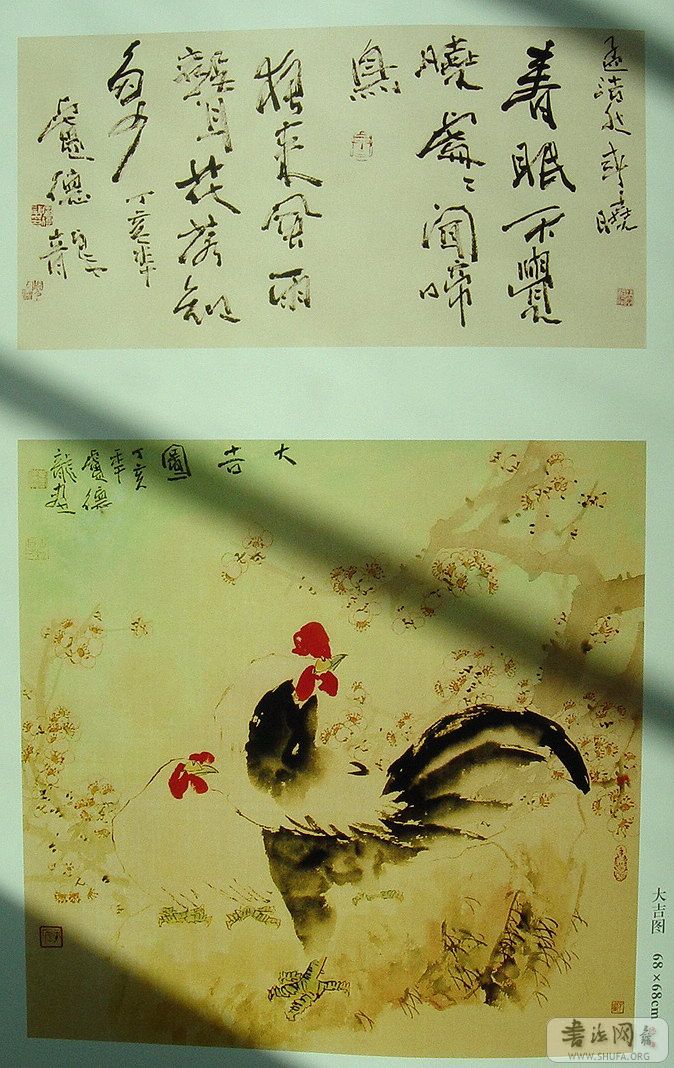 孟浩然春曉
春眠不覺
曉處々聞啼
鳥
夜來風雨
聲花落知
多少
丁亥年
盧德龍
大吉圖
丁亥
年
盧德
龍畫
大吉图 68×68cm
書法网
WWW.SHUFA.ORG